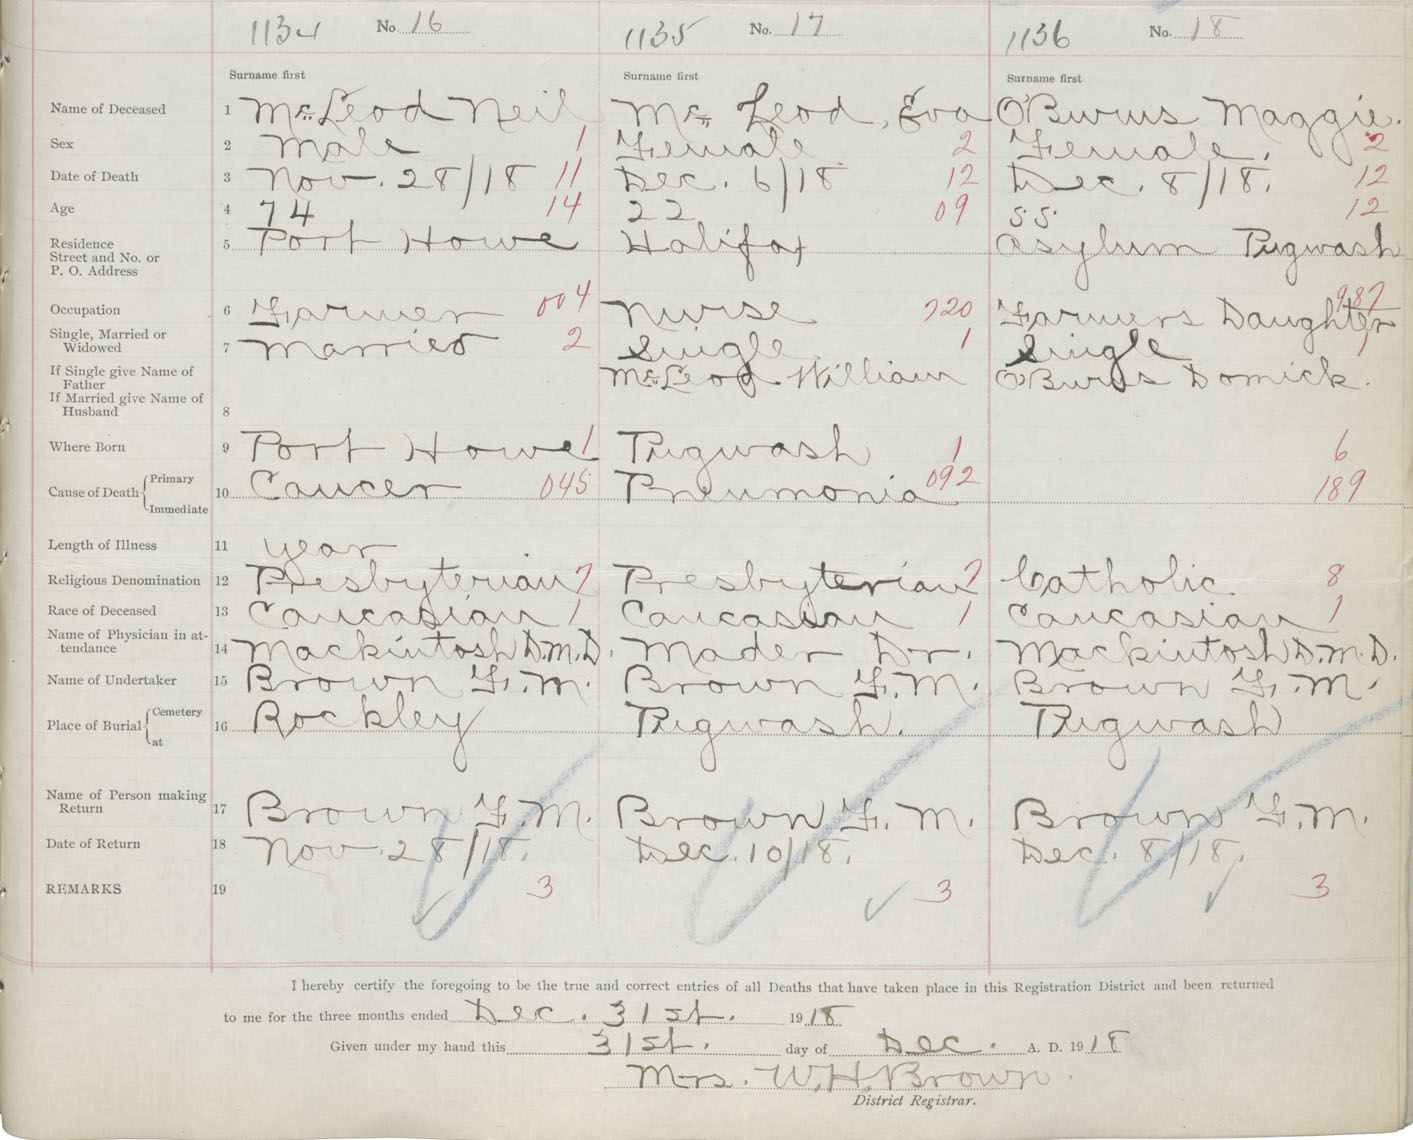 1134 No. 16 1135 No. 17 1136 No. 18
Surname first Surname first Surname first
Name of Deceased 1 McLeod Neil Mc Leod, Eva O'Burns Maggie.
Sex 2 Male 1 Female 2 Female. 2
Date of Death 3 Nov. 28/18 11 Dec. 6/18 12 Dec. 8/18. 12
Age 4 74 14 22 09 55 12
Residence
Street and No. or 5 Port Howe Halifax Asylum Pugwash
P. O. Address
Occupation 6 Farmer 004 Nurse 720 Farmers Daughter 987
Single, Married or
Widowed 7 Married 2 Single 1 Single 1
If Single give Name of
Father McLeod William O'Burns Domick.
If Married give Name of
Husband 8
Where Born 9 Port Howe 1 Pugwash 1 6
Cause of Death Primary
10 Cancer 045 Pneumonia 092 189
Immediate
Length of Illness 11 year
Religious Denomination 12 Presbyterian 7 Presbyterian 7 Catholic. 8
Race of Deceased 13 Caucasian 1 Caucasian 1 Caucasian 1
Name of Physician in at-
tendance 14 Mackintosh D.M.D. Mader Dr. Mackintosh D.M.D.
Name of Undertaker 15 Brown F.M. Brown F.M. Brown F.M.
Place of Burial Cemetery
16 Rockley Pugwash. Pugwash
at
Name of Person making
Return 17 Brown F.M. Brown F.M. Brown F.M.
Date of Return 18 Nov. 28/18. Dec. 10/18. Dec. 8/18.
REMARKS 19 3 3 3
I hereby certify the foregoing to be the true and correct entries of all Deaths that have taken place in this Registration District and been returned
to me for the three months ended Dec. 31st. 1918
Given under my hand this 31st. day of Dec. A. D. 1918
Mrs. W.H. Brown
District Registrar.